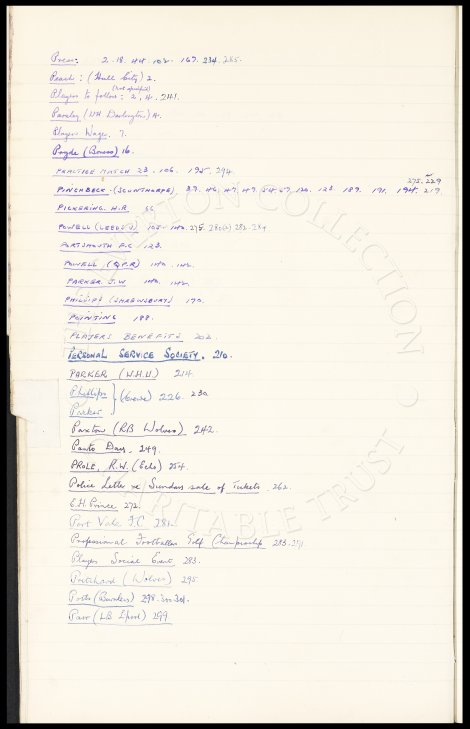 Press: 2. 18. 44. 102. 167. 234. 285.
Peach: (Hull City) 2.
(Not specified)
Players to follow: 2, 4, 241.
Parsley (LH Darlington) 4.
Players Wage. 7.
Pryde (Bowes) 16.
PRACTICE MATCH 23. 106. 195. 294.
275. 229
PINCHBECK. (SCUNTHORPE) 37. 46. 47. 49. 54. 57. 120. 123. 187. 191. 194. 217
PICKERING. H.R. 56.
POWELL (LEEDS U) 105. 140. 275. 282. 284
PORTSMOUTH F.C. 123.
POWELL. (Q.P.R) 140. 142.
PARKER J.W. 140. 142.
PHILLIPS (SHREWSBURY) 170.
POINTING 188.
PLAYERS BENEFITS 202.
PERSONAL SERVICE SOCIETY. 210.
PARKER (W.H.U.) 214.
Phillips } (Crewe) 226. 230.
Parker
Paxton (RB Wolves) 242.
Pants Dars. 249.
PROLE, R.W. (Echo) 254.
Police Letter re Sundays sale of Tickets. 262.
E.H. Prince 272.
Port Vale F.C. 281.
Professional Footballers Golf Championship 283.
Players Social Event 283.
Pritchard (Wolves) 295
Potts (Burnley) 298. 300. 304.
Parr (LB L'pool) 299.
TON COLLECTION
CHARITABLE TRUST